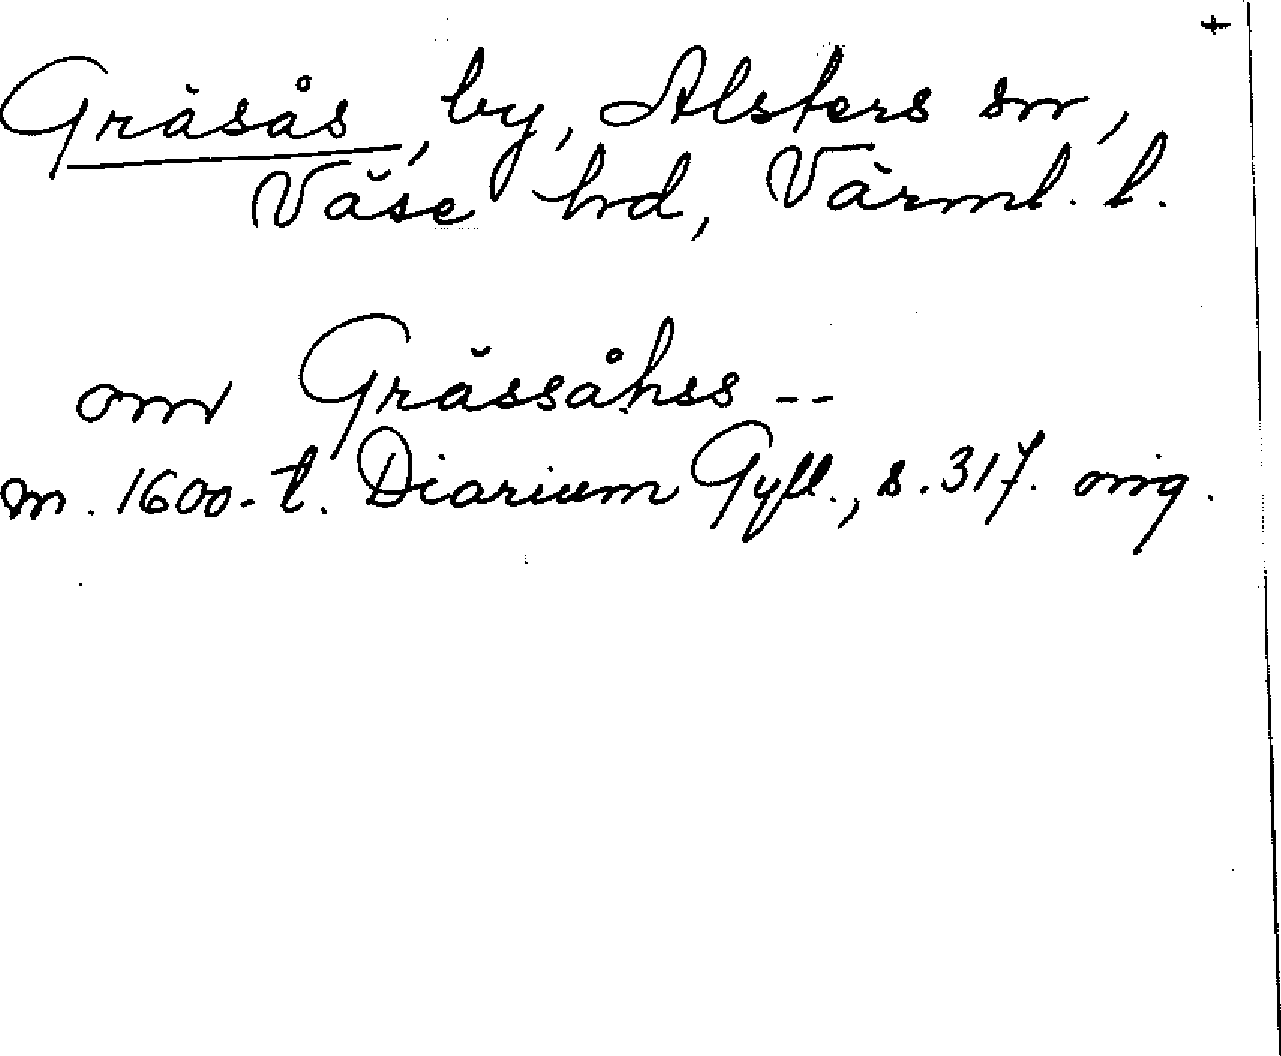 +
Gräsås, by, Alsters sn,
Väse hd, Värml. l.
om Grässåhss --
m. 1600-t. Diarium Gyll., s. 317. orig.